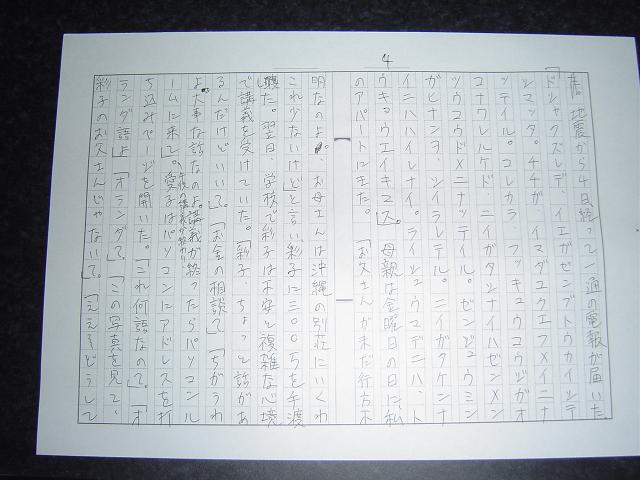 4
店。地震から4日経って一通の電報が届いた。
「ドシャクズレデ、イエガゼンブトウカイシテ
シマッタ。チチガ、イマダユクエフメイニナ
ッテイル。コレカラ、フッキュウコウジガオ
コナワレルケド、ニイガタシナイハゼンメン
ツウコウドメニナッテイル。ゼンジュウミン
ガヒナンヲ、シイラレテル。ニイガタケンナ
イニハハイレナイ。ライシュウマデニハ、ト
ウキョウエイキマス」。母親は金曜日の日に私
のアパートに来た。「お父さんが未だ行方不
明なのよ。お母さんは沖縄の別荘にいくわ
これ少ないけど」と言い彩子に三〇〇万を手渡
した。翌日、学校で彩子は不安と複雑な心境
で講義を受けていた。「彩子、ちょっと話があ
るんだけどいい」て。「お金の相談」て「ちがうわ
よ。大事な話なのよ。講義が終ったらパソコンル
ームに来て。愛子はパソコンにアドレスを打
ち込みページを開いた。「これ何語なの」て。「オ
ランダ語よ」「オランダ」て「この写真を見て、
彩子のお父さんじゃない」て。「ええそどうして